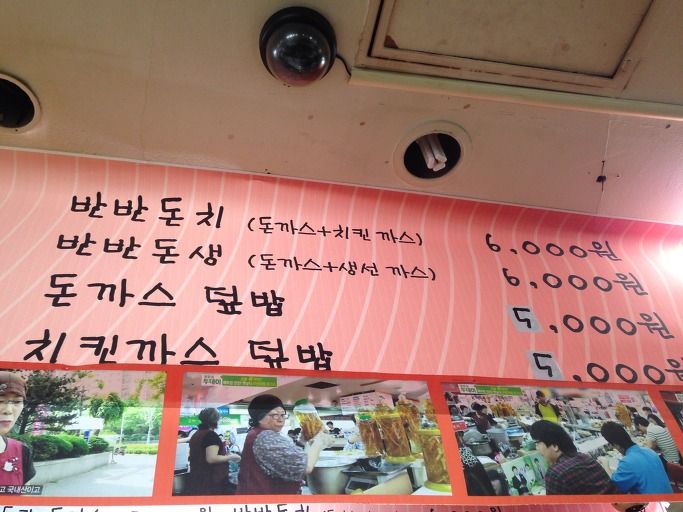 반반돈치 (돈까스+치킨까스) 6,000원
반반돈생 (돈까스+생선까스) 6,000원
돈까스 덮밥 5,000원
치킨까스 덮밥 5,000원
투데이
투데이
고 국내산이고